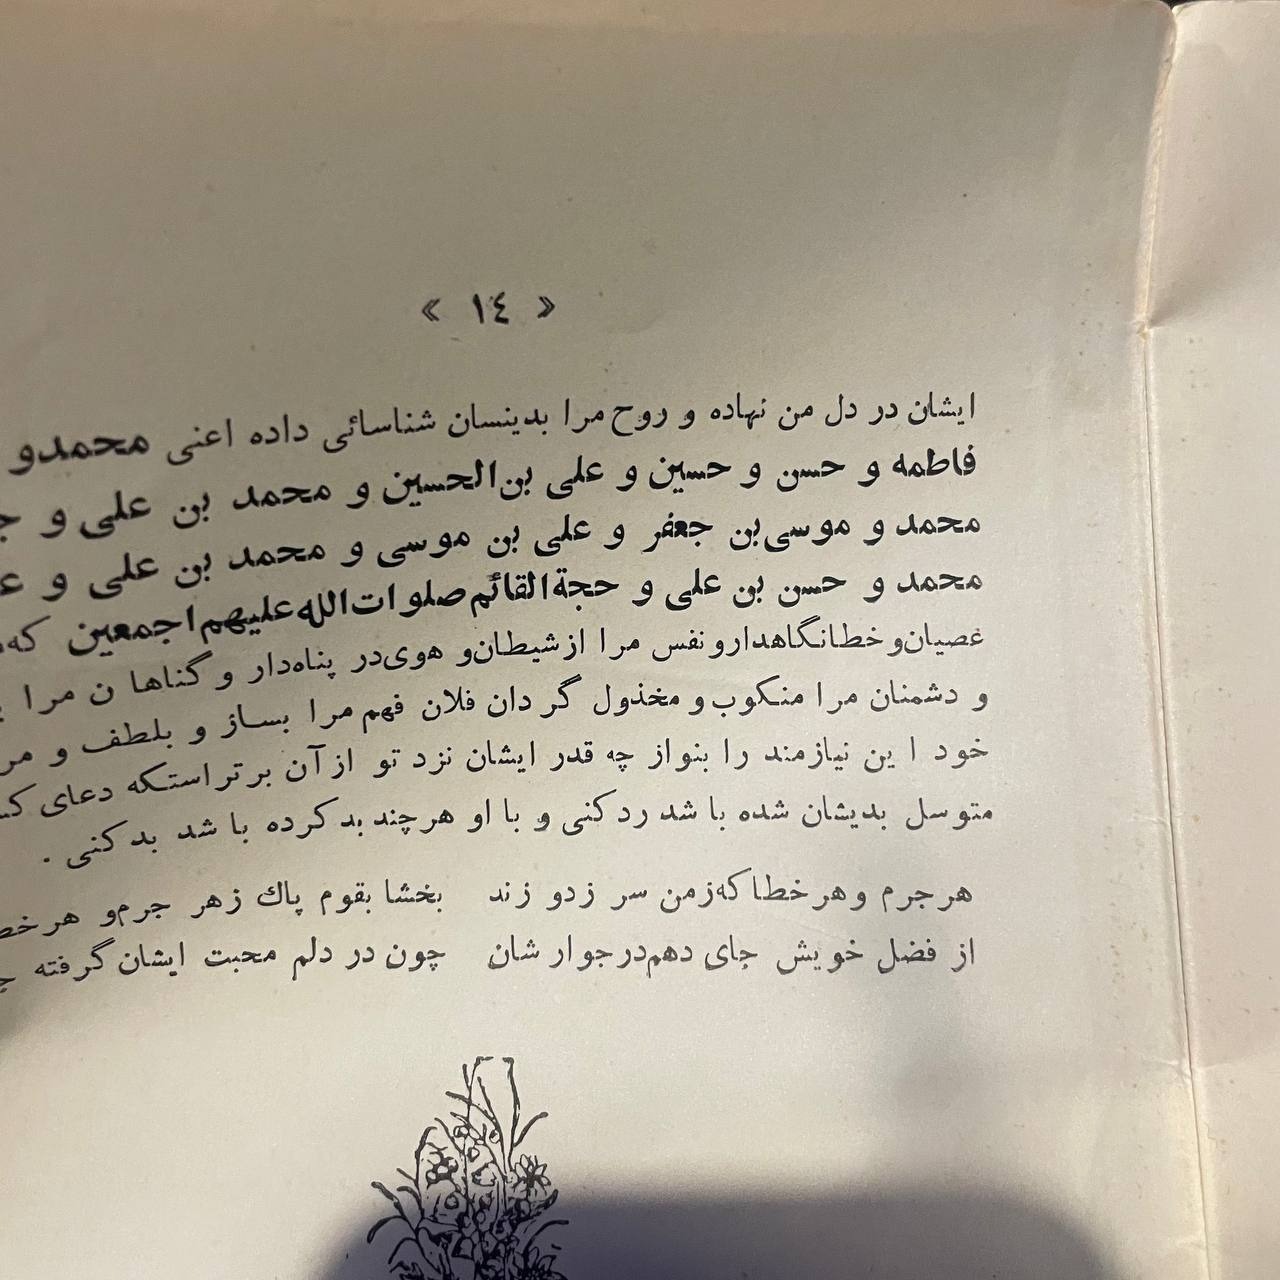 « ١٤ »
ایشان در دل من نهاده و روح مرا بدینسان شناسائی داده اعنی محمد و
فاطمه و حسن و حسین و علی بن الحسین و محمد بن علی و
محمد و موسی بن جعفر و علی بن موسی و محمد بن علی و
محمد و حسن بن علی و حجة القائم صلوات الله علیهم اجمعین
عصیان و خطا نگاهدار و نفس مرا از شیطان و هوی در پناه دار و گناها ن مرا
و دشمنان مرا منکوب و مخذول گردان فلان فهم مرا بساز و بلطف و
خود این نیازمند را بنواز چه قدر ایشان نزد تو از آن برتر استکه دعای
متوسل بدیشان شده باشد رد کنی و با او هرچند بد کرده باشد بد کنی .
هر جرم و هر خطا که زمن سر زد و زند بخشا بقوم پاك زهر جرم و هر
از فضل خویش جای دهم در جوار شان چون در دلم محبت ایشان گرفته